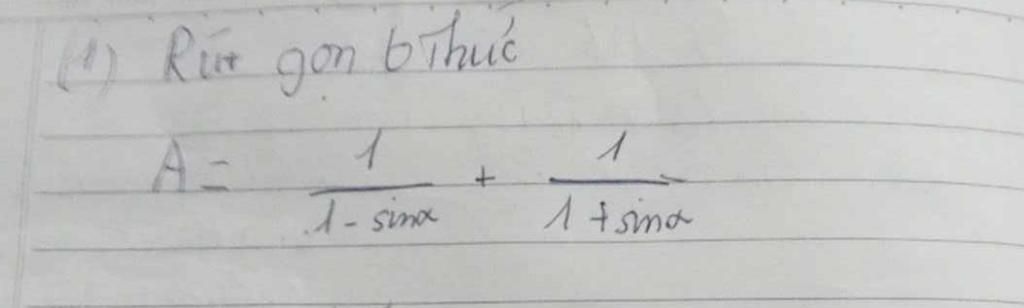 (1) Rút gọn b thức
A = 1/(1 - sinα) + 1/(1 + sinα)